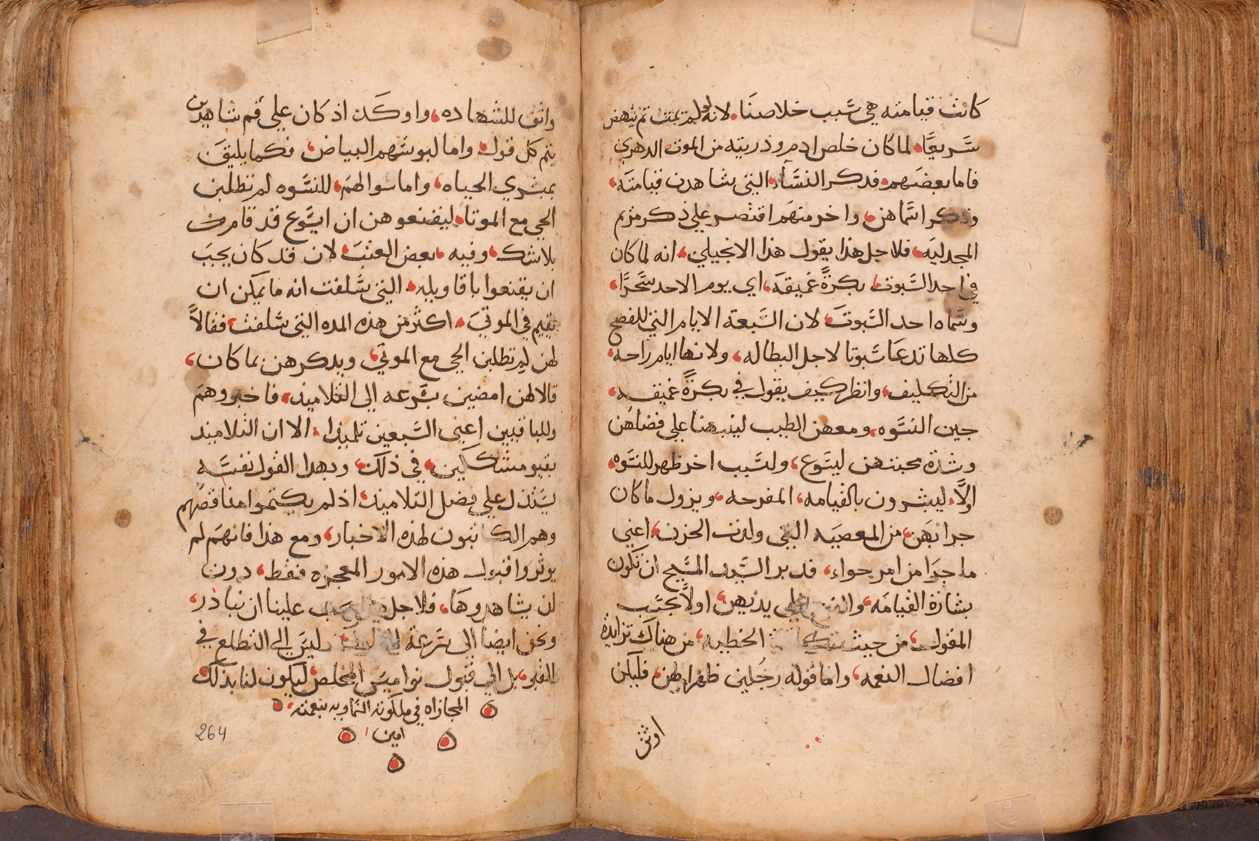 كانت قيامته هي سبب خلاصنا، لانه لو لم يمت ثم ينهض
سريعًا، لما كان خلص ادم وذريته من الموت الدهري
فاما بعضهم، فذكر النساء، التي شاهدن قيامته،
وذكر اسماهن، واخر منهم اقتصر علي ذكر مريم
المجدليه، فلاجل هذا يقول هذا الانجيلي، انه لما كان
في احد السبوت، بكرةً عميقه، اي يوم الاحد سحرًا،
وسماه احد السبوت، لان السبعة الايام التي للفصح
كلها تدعا سبوتا لاجل البطاله، ولانها ايام راحه،
من التكليف، وانظر كيف يقول في بكرةً عميقه،
حين النسوه، ومعهن الطيب لينبهنا علي فضلهن
وشدة محبتهن ليسوع، ولسبب اخر ظهر للنسوه،
اولًا، ليبشرون بالقيامه، المفرحه، ويزول ما كان
جرا لهن، من المعصيه التي ولدت الحزن، اعني
ما جرا من امر حواء، قد بر السيد المسيح ان تكون
بشارة القيامه، علي يديهن، اولًا بحسب
المقول، من حيث الخطيه، من هناك تزايدة
افضال النعمه، واما قوله رجلين ظهرا لهن، فليكن
اوثق
واثق للشهاده، واوكد اذ كان علي فم شاهدين
يتم كل قول، واما لبوسهم البياض، فكما يليق
بمبشري الحياه، واما سوالهم، للنسوه لم تطلبن
الحي مع الموتا، ليقنعوهن ان ايسوع قد قام من
بلا شك، وفيه، بعض العتب، لان قد كان يجب
ان يقنعوا باقاويله، التي سلفت انه ما يمكن ان
يقيم في الموتي، اكثر من هذه المده التي سلفت، فقالاً
لهن لم تطلبن الحي مع الموتي، ويدكرهن بما كان،
قالا لهن امضين بسرعه الي التلاميذ، فاخبروهم
وللباقيين اعني السبعين تلميذا، الا ان التلاميذ
بقيو مشككين، في ذلك، وبهذا القول نفسه
يستدل علي فضل التلاميذ، اذ لم يكتموا مناقصهم
وهم الكاتبون لهذه الاخبار، ومع هذا فانهم لم
يوثروا قبول هذه الامور المعجزه فقط، دون
ان يشاهدوها، فلاجل علينا ان نبادر،
ونحن ايضا الي سرعة ليس الي التطلع في
القبر، بل الي قبول نواميس المخلص ليكون لنا بذلك
المجازاه في ملكوته السماويه بنعمته،
امين
264